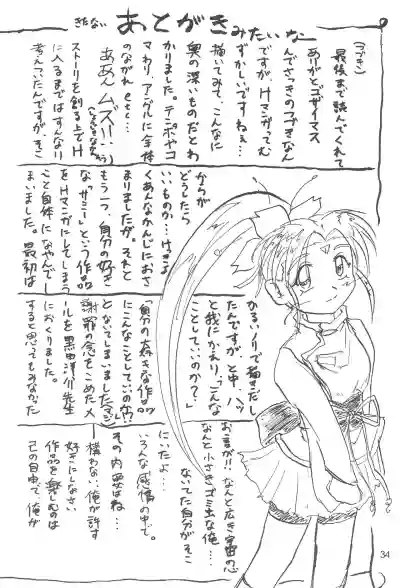 きたない あとがき みたいな
(つづき)
最後まで読んでくれて
ありがとゴザイマス
んでさっきのつづきなん
ですが、Hマンガってむ
ずかしいですねぇ…
描いてみて、こんなに
奥の深いものだとわ
かりました。テンポやコ
マわり、アングルに全体
のながれetc…
ああんムズいーっ
ストーリを創る上でH
に入るまではすんなり
考えつったんですが、さ
からが
どうしたら
いいものか…けっきょ
くあんなかんじにおさ
まりましたが。それと
もう一つ、自分の好き
な「サミー」という作品
をHマンガにしてしまう
こと自体になやんでし
まいました。最初は
かるいノリで描きだし
たんですが、と中、ハッ
と我にかえり、「こんな
ことしていいのか?」
「自分の大好きな作品
にこんなことしていいのか!?」
となってしまいました(マジ)
謝罪の念をこめたメ
ールを黒田洋介先生
におくりました。
すると思ってもみなかった
お言が!! なんと広き宇宙の心
なんと小さきゴミ虫な俺…
ないてた自分がそこ
にいたよ…
いろんな感情の中で。
その内容はね…
構わない、俺が許す
好きにしなさい
作品を楽しむのは
己の自由で、俺が
34